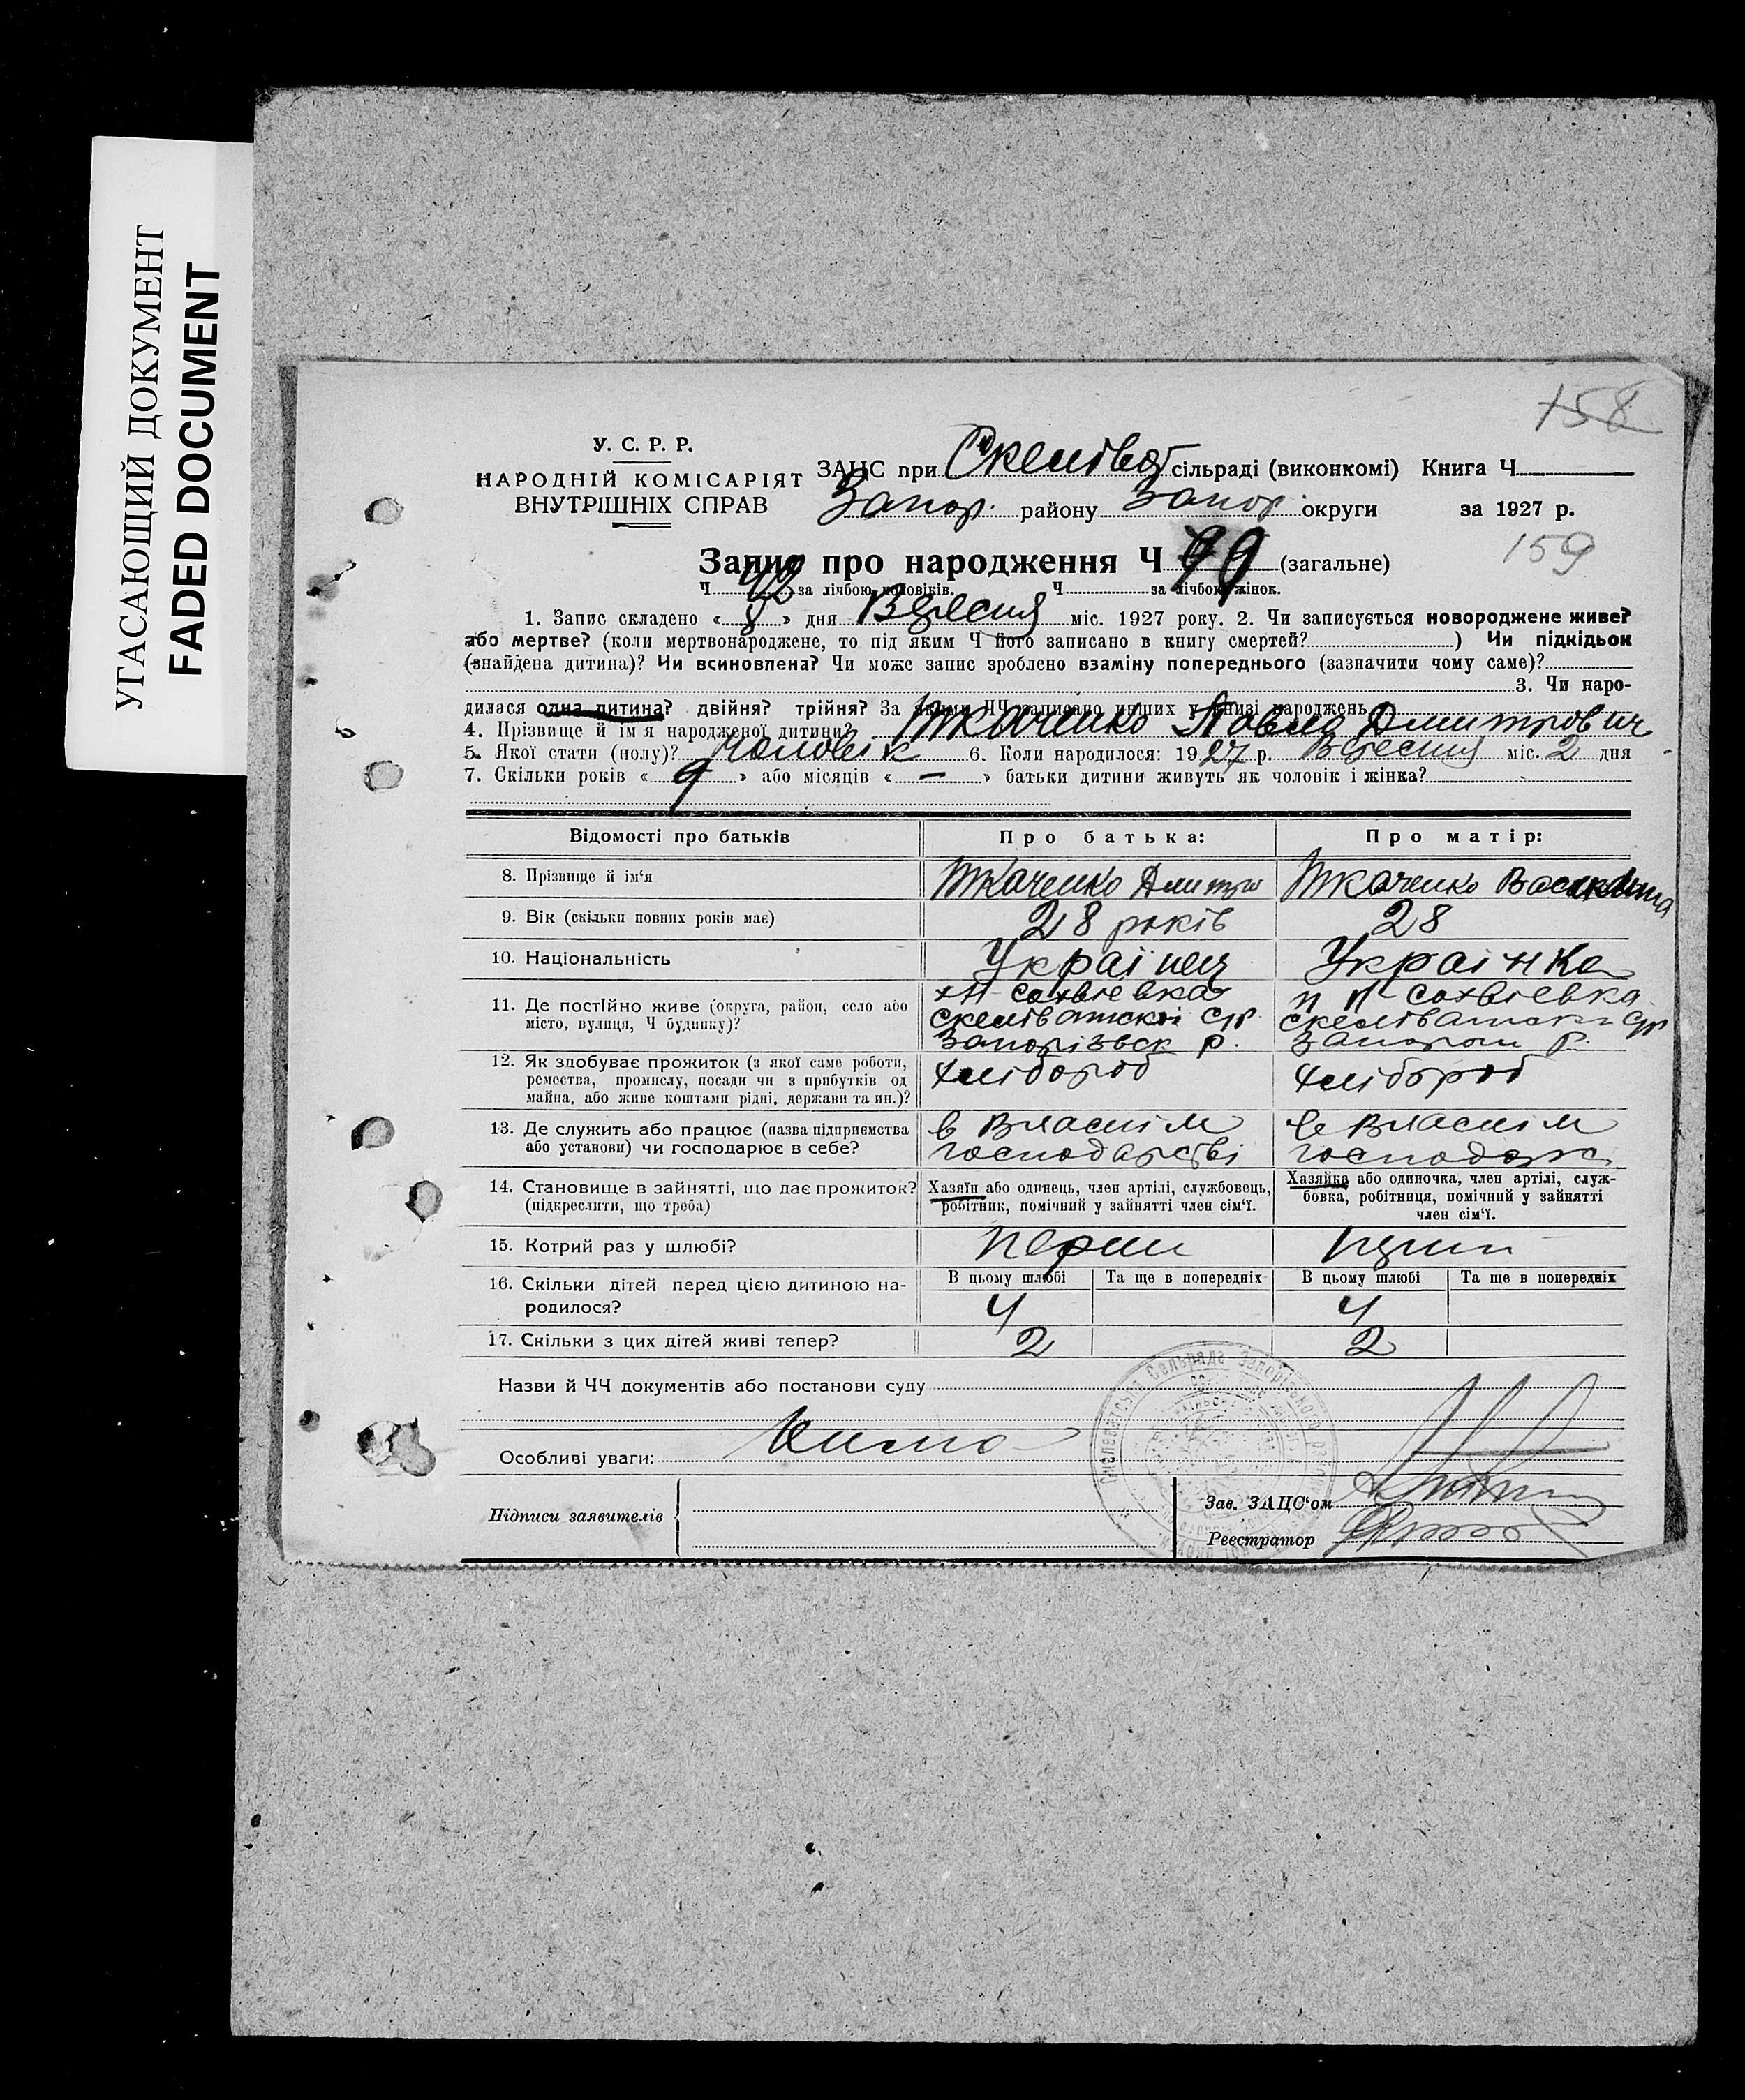 УГАСАЮЩИЙ ДОКУМЕНТ
FADED DOCUMENT
158
У. С. Р. Р.
НАРОДНІЙ КОМІСАРІЯТ
ВНУТРІШНІХ СПРАВ
ЗАЦС при Скелів сільраді (виконкомі) Книга Ч
Запор. району Запор. округи за 1927 р.
Запис про народження Ч 99 (загальне)
159
Ч 42 за лічбою чоловіків. Ч за лічбою жінок.
1. Запис складено « 8 » дня Вересня міс. 1927 року. 2. Чи записується новороджене живе?
або мертве? (коли мертвонароджене, то під яким Ч його записано в книгу смертей? ) Чи підкідьок
(знайдена дитина)? Чи всиновлена? Чи може запис зроблено взаміну попереднього (зазначити чому саме)?
3. Чи наро-
дилася одна дитина? двійня? трійня? За якими ЧЧ записано инших у книзі народжень
4. Прізвище й ім'я народженої дитини? Ткаченко Павло Дмитрович
5. Якої стати (полу)? чоловік 6. Коли народилося: 1927 р. Вересня міс. 2 дня
7. Скільки років « 9 » або місяців « — » батьки дитини живуть як чоловік і жінка?
Відомості про батьків Про батька: Про матір:
8. Прізвище й ім'я Ткаченко Дмитро Ткаченко
9. Вік (скільки повних років має) 28 років 28
10. Національність Українец Українка
11. Де постійно живе (округа, район, село або
місто, вулиця, Ч будинку)?
х. Сохвіевка
Скеліватской С/р.
Запорізьск р.
Сохвіевка
Скеліватск С/р
р.
12. Як здобуває прожиток (з якої саме роботи,
ремества, промислу, посади чи з прибутків од
майна, або живе коштами рідні, держави та ин.)?
Хлібороб Хлібороб
13. Де служить або працює (назва підприємства
або установи) чи господарює в себе?
в Власнім
господарстві
в Власнім
господарс
14. Становище в зайнятті, що дає прожиток?
(підкреслити, що треба)
Хазяїн або одинець, член артілі, службовець,
робітник, помічний у зайнятті член сім'ї.
Хазяйка або одиночка, член артілі, служ-
бовка, робітниця, помічний у зайнятті
член сім'ї.
15. Котрий раз у шлюбі? перши
16. Скільки дітей перед цією дитиною на-
родилося?
В цьому шлюбі Та ще в попередніх В цьому шлюбі Та ще в попередніх
4 4
17. Скільки з цих дітей живі тепер? 2 2
Назви й ЧЧ документів або постанови суду
Особливі уваги:
Підписи заявителів
Зав. ЗАЦС'ом
Реєстратор